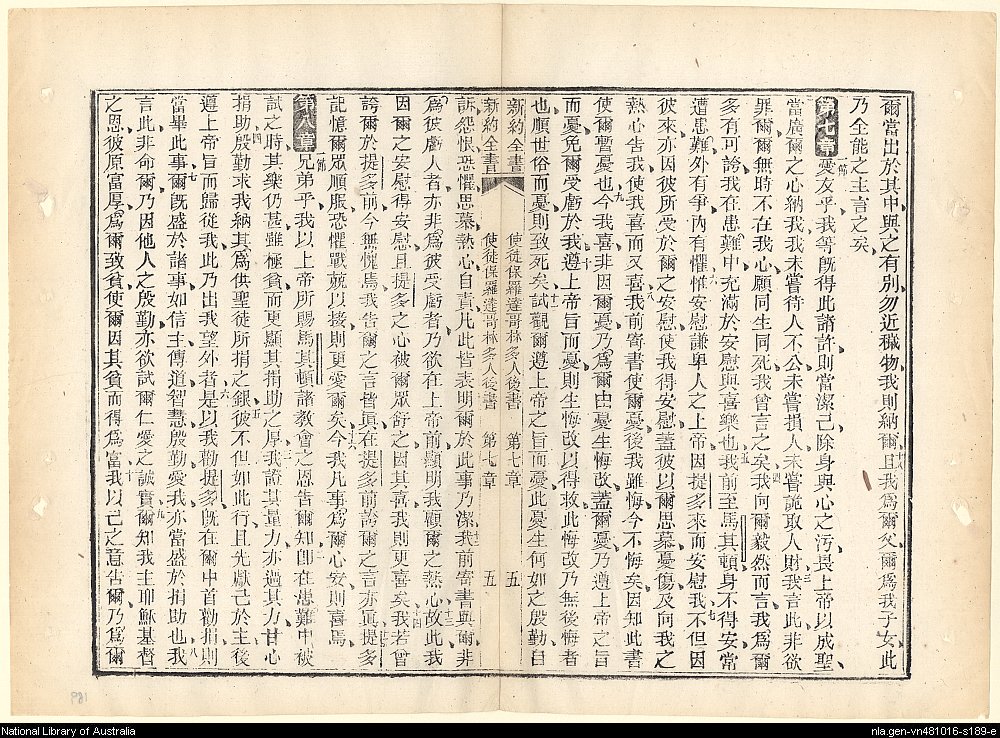 爾當出於其中與之有別勿近穢物我則納爾且我爲爾父爾爲我子女此十八
乃全能之主言之矣
第七章
一節愛友乎我等旣得此諸許則當潔己除身與心之污畏上帝以成聖
當廣爾之心納我我未嘗待人不公未嘗損人未嘗詭取人財我言此非欲
罪爾爾無時不在我心願同生同死我曾言之矣我向爾毅然而言我爲爾
多有可誇我在患難中充滿於安慰與喜樂也我前至馬其頓身不得安常
遭患難外有爭內有懼惟安慰謙卑人之上帝因提多來而安慰我不但因
彼來亦因彼所受於爾之安慰使我得安慰蓋彼以爾思慕憂傷及向我之
熱心告我使我喜而又喜我前寄書使爾憂後我雖悔今不悔矣因知此書
使爾暫憂也今我喜非因爾憂乃爲爾由憂生悔改蓋爾憂乃遵上帝之旨
而憂免爾受虧於我遵上帝旨而憂則生悔改以得救此悔改乃無後悔者
也順世俗而憂則致死矣試觀爾遵上帝之旨而憂此憂生何如之殷勤自
新約全書 使徒保羅達哥林多人後書 第七章 五
新約全書 使徒保羅達哥林多人後書 第七章 五
訴怨恨恐懼思慕熱心自責凡此皆表明爾於此事乃潔我前寄書與爾非
爲彼虧人者亦非爲彼受虧者乃欲在上帝前顯明我顧爾之熱心故此我
因爾之安慰得安慰且提多之心被爾眾舒之因其喜我則更喜矣我若曾
誇爾於提多前今無愧焉我告爾之言皆眞在提多前誇爾之言亦眞提多
記憶爾眾順服恐懼戰兢以接則更愛爾矣今我凡事爲爾心安則喜焉
第八章
一節兄弟乎我以上帝所賜馬其頓諸教會之恩告爾知卽在患難中被
試之時其樂仍甚雖極貧而更顯其捐助之厚我證其量力亦過其力甘心
捐助殷勤求我納其爲供聖徒所捐之銀彼不但如此行且先獻己於主後
遵上帝旨而歸從我此乃出我望外者是以我勸提多旣在爾中首勸捐則
當畢此事爾旣盛於諸事如信主傳道智慧殷勤愛我亦當盛於捐助也我
言此非命爾乃因他人之殷勤亦欲試爾仁愛之誠實爾知我主耶穌基督
之恩彼原富厚爲爾致貧使爾因其貧而得爲富我以己之意告爾乃爲爾
National Library of Australia
nla.gen-vn481016-s189-e